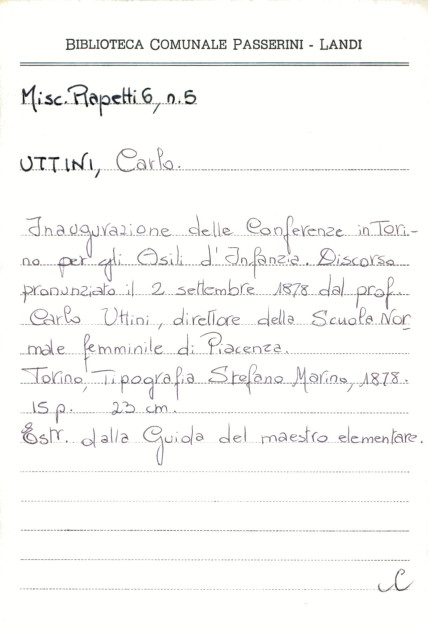 BIBLIOTECA COMUNALE PASSERINI - LANDI
Misc. Rapetti 6, n. 5
UTTINI, Carlo.
Inaugurazione delle Conferenze in Tori-
no per gli Asili d'Infanzia. Discorso
pronunziato il 2 settembre 1878 dal prof.
Carlo Uttini, direttore della Scuola Nor
male femminile di Piacenza.
Torino, Tipografia Stefano Marino, 1878.
15 p. 23 cm.
Estr. dalla Guida del maestro elementare.